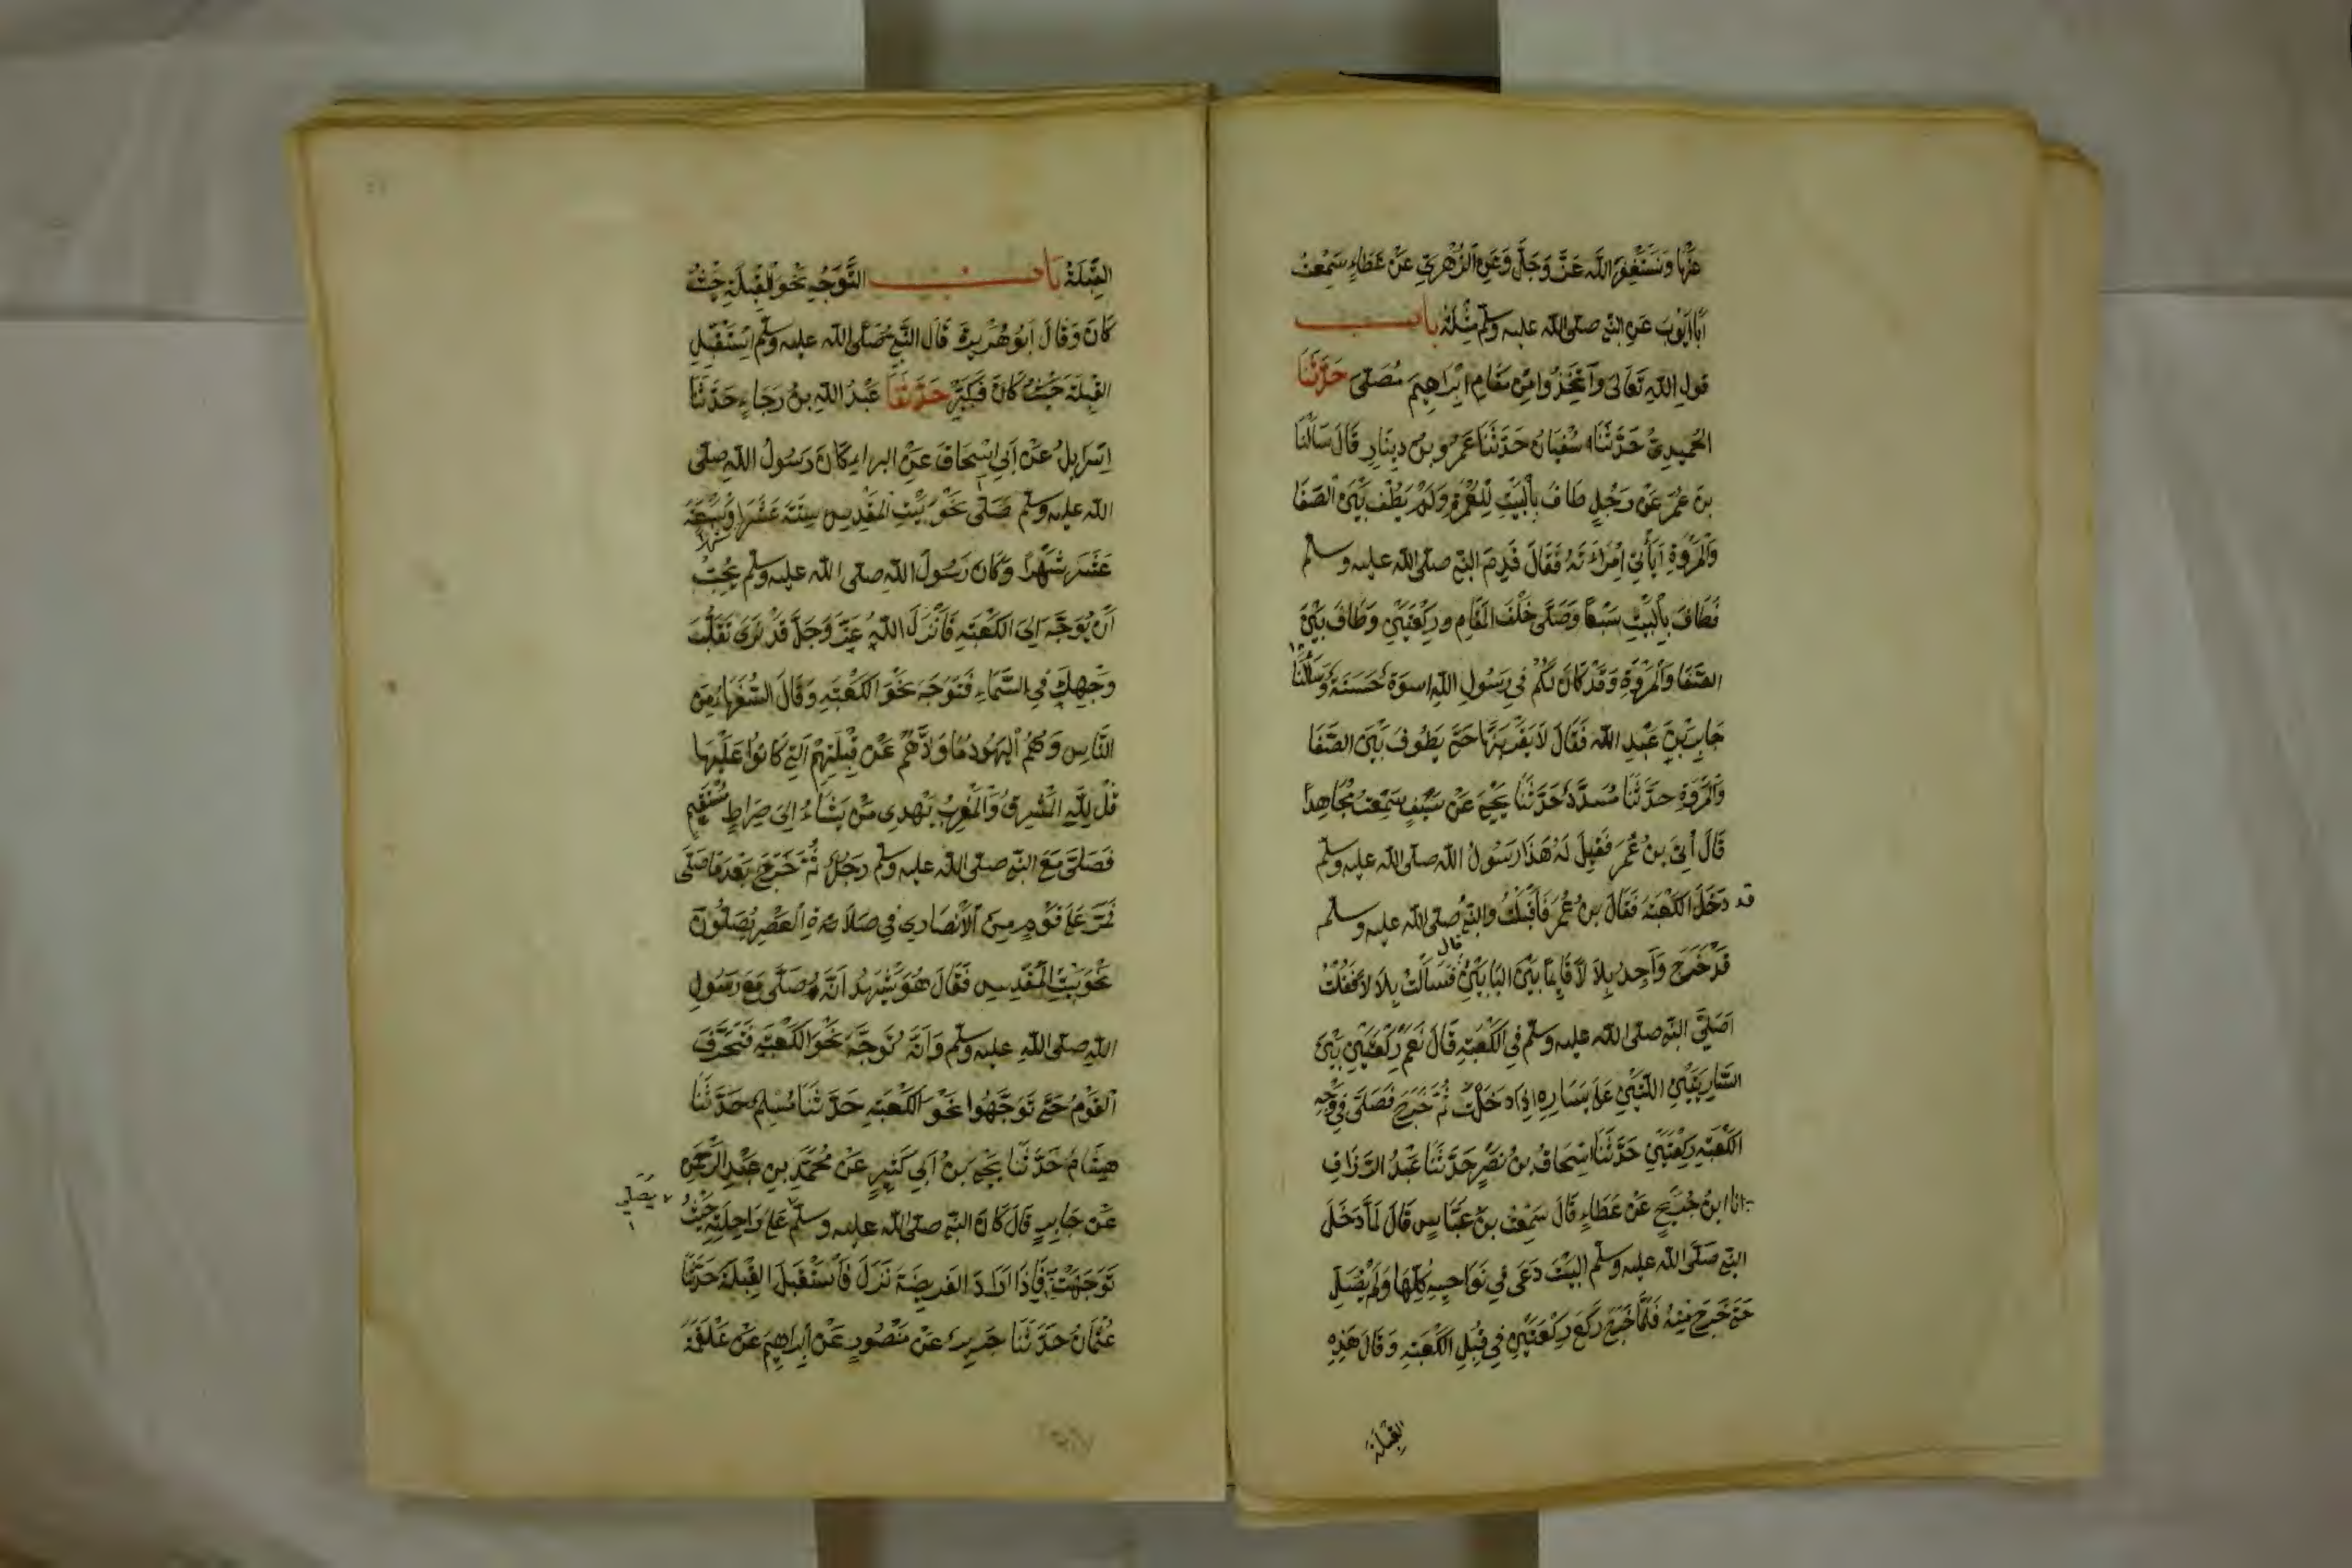 عنها ونستغفر الله عز وجل وعن الزهري عن عطاء سمعت
أبا أيوب عن النبي صلى الله عليه وسلم مثله باب
قول الله تعالى واتخذوا من مقام ابراهيم مصلى حدثنا
الحميدي حدثنا سفيان حدثنا عمرو بن دينار قال سألنا
بن عمر عن رجل طاف بالبيت للعمرة ولم يطف بين الصفا
والمروة أيأتي امرأته فقال قدم النبي صلى الله عليه وسلم
فطاف بالبيت سبعا وصلى خلف المقام ركعتين وطاف بين
الصفا والمروة وقد كان لكم في رسول الله اسوة حسنة وسألنا
جابر بن عبد الله فقال لا يقربنها حتى يطوف بين الصفا
والمروة حدثنا مسدد حدثنا يحيى عن سيف سمعت مجاهدا
قال أتي بن عمر فقيل له هذا رسول الله صلى الله عليه وسلم
قد دخل الكعبة فقال بن عمر فأقبلت والنبي صلى الله عليه وسلم
قد خرج وأجد بلالا قائما بين البابين قال فسألت بلالا فقلت
أصلى النبي صلى الله عليه وسلم في الكعبة قال نعم ركعتين بين
الساريتين اللتين على يساره إذا دخلت ثم خرج فصلى في وجه
الكعبة ركعتين حدثنا اسحاق بن نصر حدثنا عبد الرزاق
انا ابن جريج عن عطاء قال سمعت بن عباس قال لما دخل
النبي صلى الله عليه وسلم البيت دعى في نواحيه كلها ولم يصل
حتى خرج منه فلما خرج ركع ركعتين في قبل الكعبة وقال هذه
القبلة
القبلة باب التوجه نحو القبلة حيث
كان وقال أبو هريرة قال النبي صلى الله عليه وسلم استقبل
القبلة حيث كان فكبر حدثنا عبد الله بن رجاء حدثنا
اسرايل عن أبي اسحاق عن البراء كان رسول الله صلى
الله عليه وسلم صلى نحو بيت المقدس ستة عشر شهرا وسبعة
عشر شهرا وكان رسول الله صلى الله عليه وسلم يحب
أن يوجه إلى الكعبة فأنزل الله عز وجل قد نرى تقلب
وجهك في السماء فتوجه نحو الكعبة وقال السفهاء من
الناس وهم اليهود ما ولاهم عن قبلتهم التي كانوا عليها
قل لله المشرق والمغرب يهدي من يشاء إلى صراط مستقيم
فصلى مع النبي صلى الله عليه وسلم رجل ثم خرج بعد ما صلى
فمر على قوم من الأنصار في صلاة العصر يصلون
نحو بيت المقدس فقال هو يشهد أنه صلى مع رسول
الله صلى الله عليه وسلم وأنه توجه نحو الكعبة فتحرف
القوم حتى توجهوا نحو الكعبة حدثنا مسلم حدثنا
هشام حدثنا يحيى بن أبي كثير عن محمد بن عبد الرحمن
عن جابر قال كان النبي صلى الله عليه وسلم يصلي على راحلته حيث
توجهت به فإذا أراد الفريضة نزل فاستقبل القبلة حدثنا
عثمان حدثنا جرير عن منصور عن ابراهيم عن علقمة